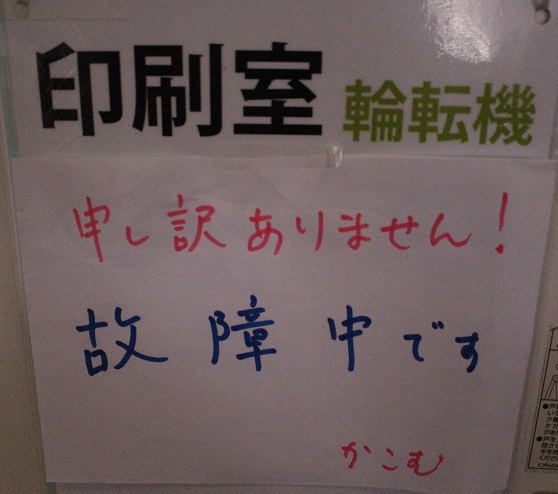 印刷室 輪転機
申し訳ありません!
故障中です
かこむ